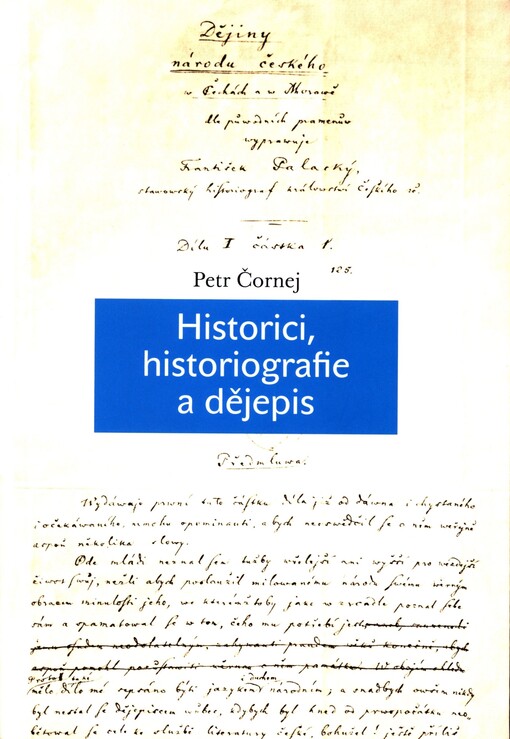 Dějiny
národu českého
w Čechách a w Morawě
dle půwodních pramenůw
wyprawuje
František Palacký,
stawowský historiograf králowství Českého
Dílu I částka 1.
185.
Petr Čornej
Historici,
historiografie
a dějepis
Předmluwa.
Wydáwaje prwní tuto částku díla již od dáwna i chystaného
i očekáwaného, nemohu opominauti, abych neoswědčil se o něm weřejně
aspoň několika slowy.
Ode mládí neznal sem tužby wřelejší ani wyšší pro weškerý
žiwot swůj, nežli abych posloužil milowanému národu swému wěrným
obrazem minulosti jeho, we kterémžtoby, jako w zrcadle poznal sebe
sám a zpamatowal se w tom, čeho mu potřebí jest
mělo dílo mé sepsáno býti jazykem národním; a snadbych owšem nikdy
byl nestal se dějepiscem wůbec, kdybych byl hned od prwopočátku
se cele we službě literatury české, bohužel! ještě příliš